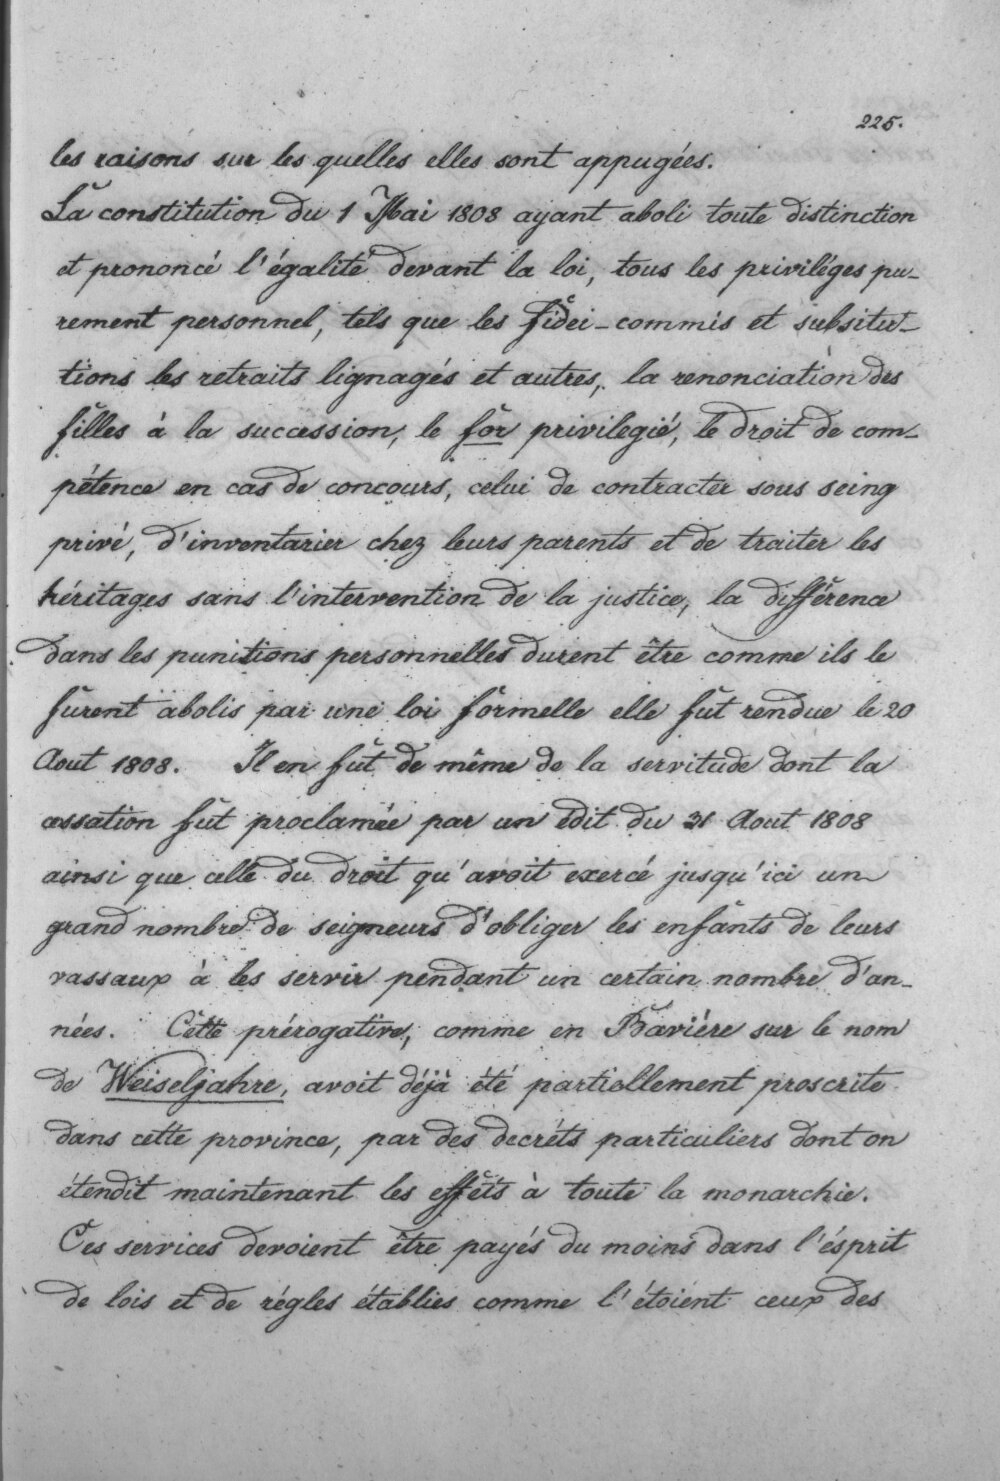 225.
les raisons sur les quelles elles sont appugées.
La constitution du 1 Mai 1808 ayant aboli toute distinction
et prononcé l'égalité devant la loi, tous les priviléges pu-
rement personnel, tels que les fidei-commis et subsitu-
tions les retraits lignagés et autres, la renonciation des
filles à la succession, le for privilegié, le droit de com-
pétence en cas de concours, celui de contracter sous seing
privé, d'inventarier chez leurs parents et de traiter les
héritages sans l'intervention de la justice, la différence
dans les punitions personnelles durent être comme ils le
furent abolis par une loi formelle elle fut rendue le 20
Aout 1808. Il en fut de même de la servitude dont la
cessation fut proclamée par un édit du 31 Aout 1808
ainsi que celle du droit qu'avoit exercé jusqu'ici un
grand nombre de seigneurs d'obliger les enfants de leurs
vassaux à les servir pendant un certain nombre d'an-
nées. Cette prérogative, comme en Baviére sur le nom
de Weiseljahre, avoit déjà été partiellement proscrite
dans cette province, par des decréts particuliers dont on
étendit maintenant les effets à toute la monarchie.
Ces services devoient être payés du moins dans l'ésprit
de lois et de régles établies comme l'étoient ceux des